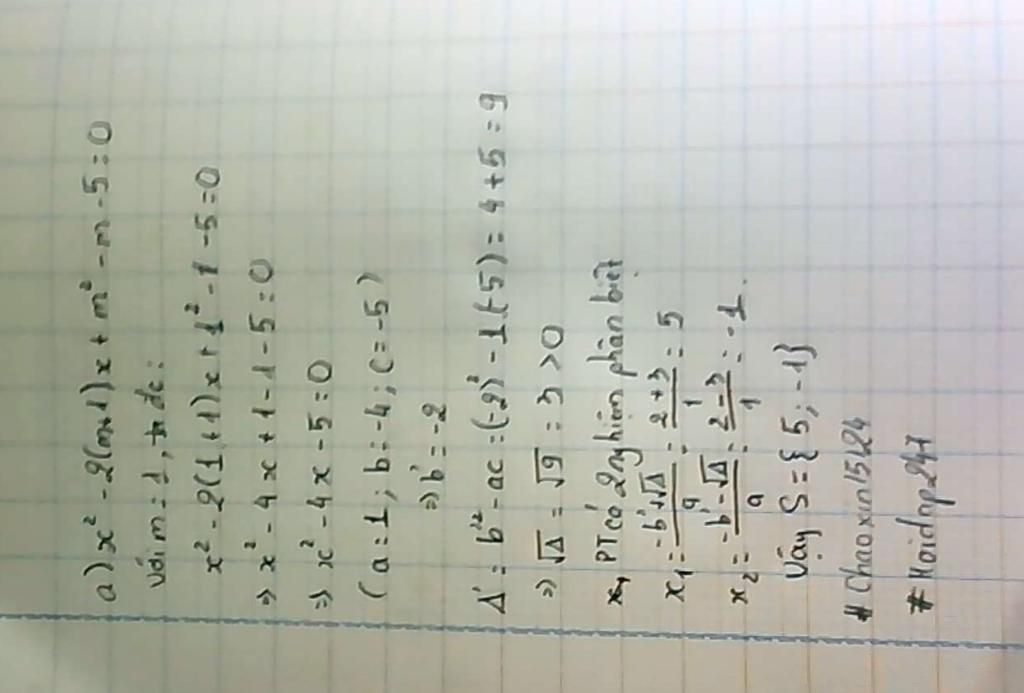 a) x² - 2(m+1)x + m² - m - 5 = 0
Với m = 1, ta đc:
x² - 2(1+1)x + 1² - 1 - 5 = 0
=> x² - 4x + 1 - 1 - 5 = 0
=> x² - 4x - 5 = 0
(a = 1; b = -4; c = -5)
=> b' = -2
Δ' = b'² - ac = (-2)² - 1.(-5) = 4 + 5 = 9
=> √Δ' = √9 = 3 > 0
PT có 2 nghiệm phân biệt
x₁ = (-b' + √Δ')/a = (2+3)/1 = 5
x₂ = (-b' - √Δ')/a = (2-3)/1 = -1.
Vậy S = {5; -1}
# Chaoxin15124
# Hoidap247